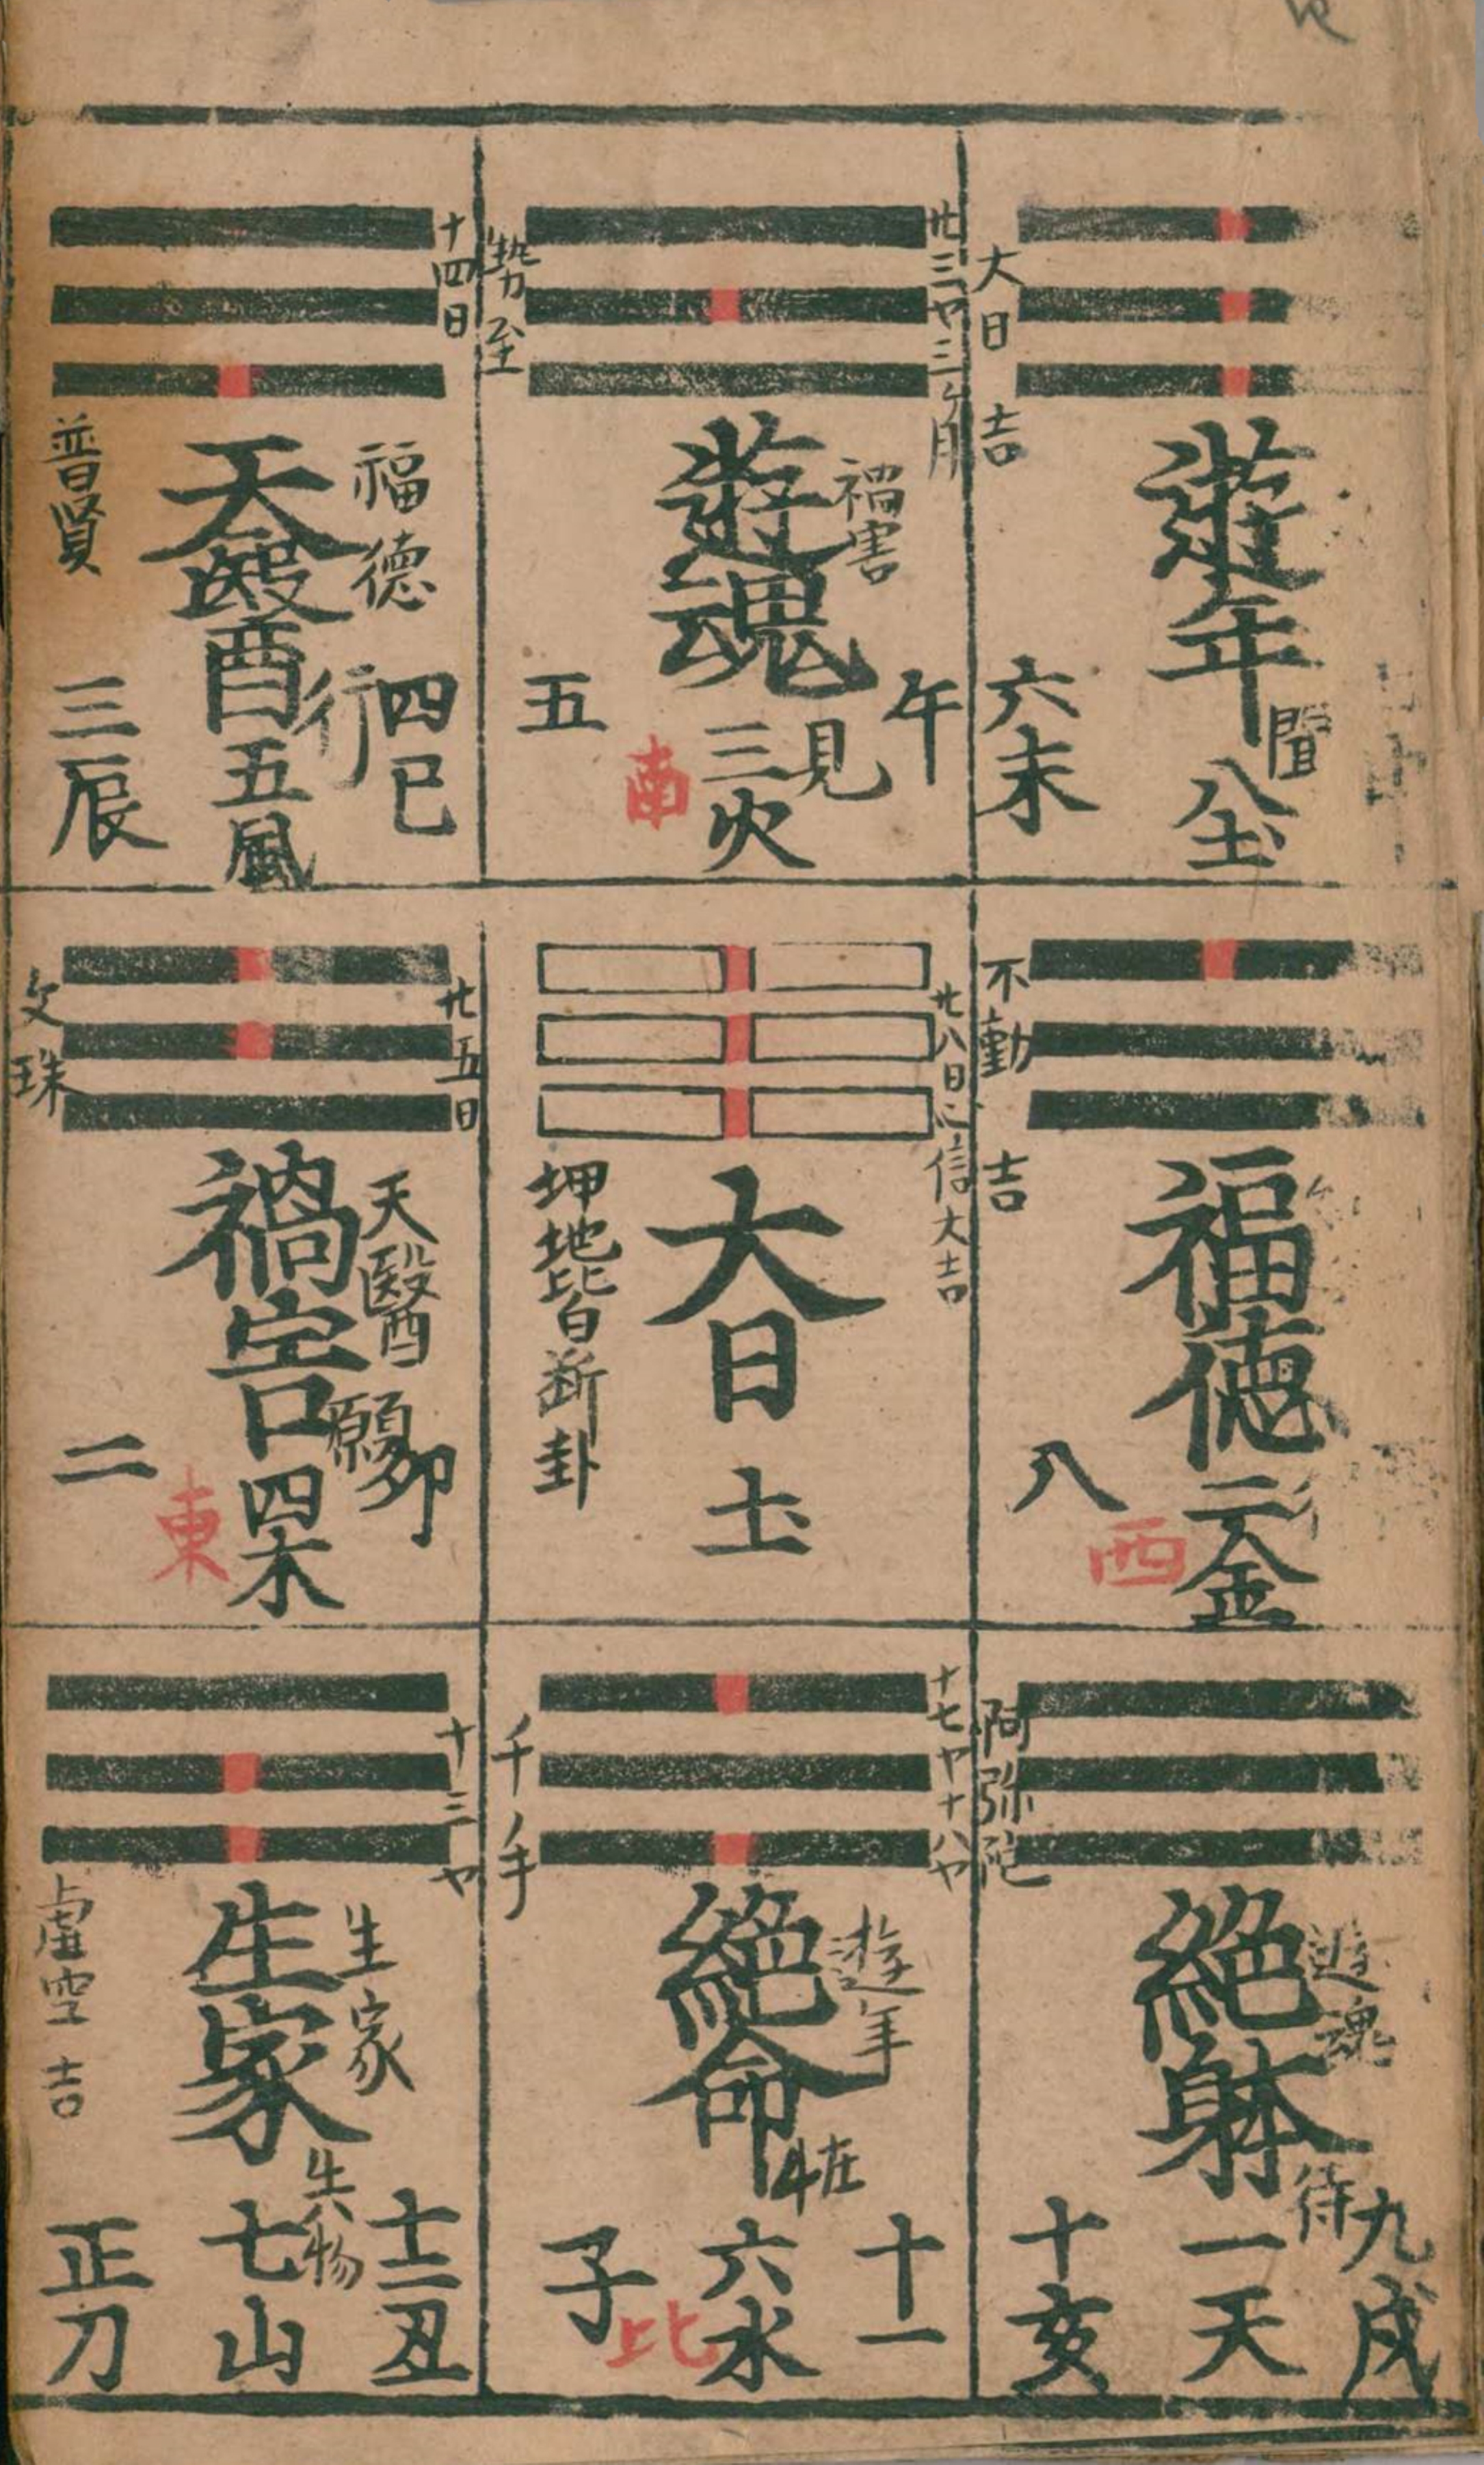 大日 吉
遊年
聞
八土
六未
廿三ヤ三ケ月
勢至
禍害
遊魂
見
三火
午
五
南
十四日
福德
天醫
普賢
行
五風
四巳
三辰
不動 吉
福德
二金
八
西
廿八日
信大吉
大日
土
坤地皆断卦
廿五日
文珠
天醫
禍害
願
四木
卯
二
東
阿弥陀
遊魂
絶躰
待
一天
九戌
十亥
十七ヤ十八ヤ
千ノ手
遊年
絶命
在
六水
十一
子
比
十三ヤ
生家
生家
虚空 吉
七山
十二丑
正刀